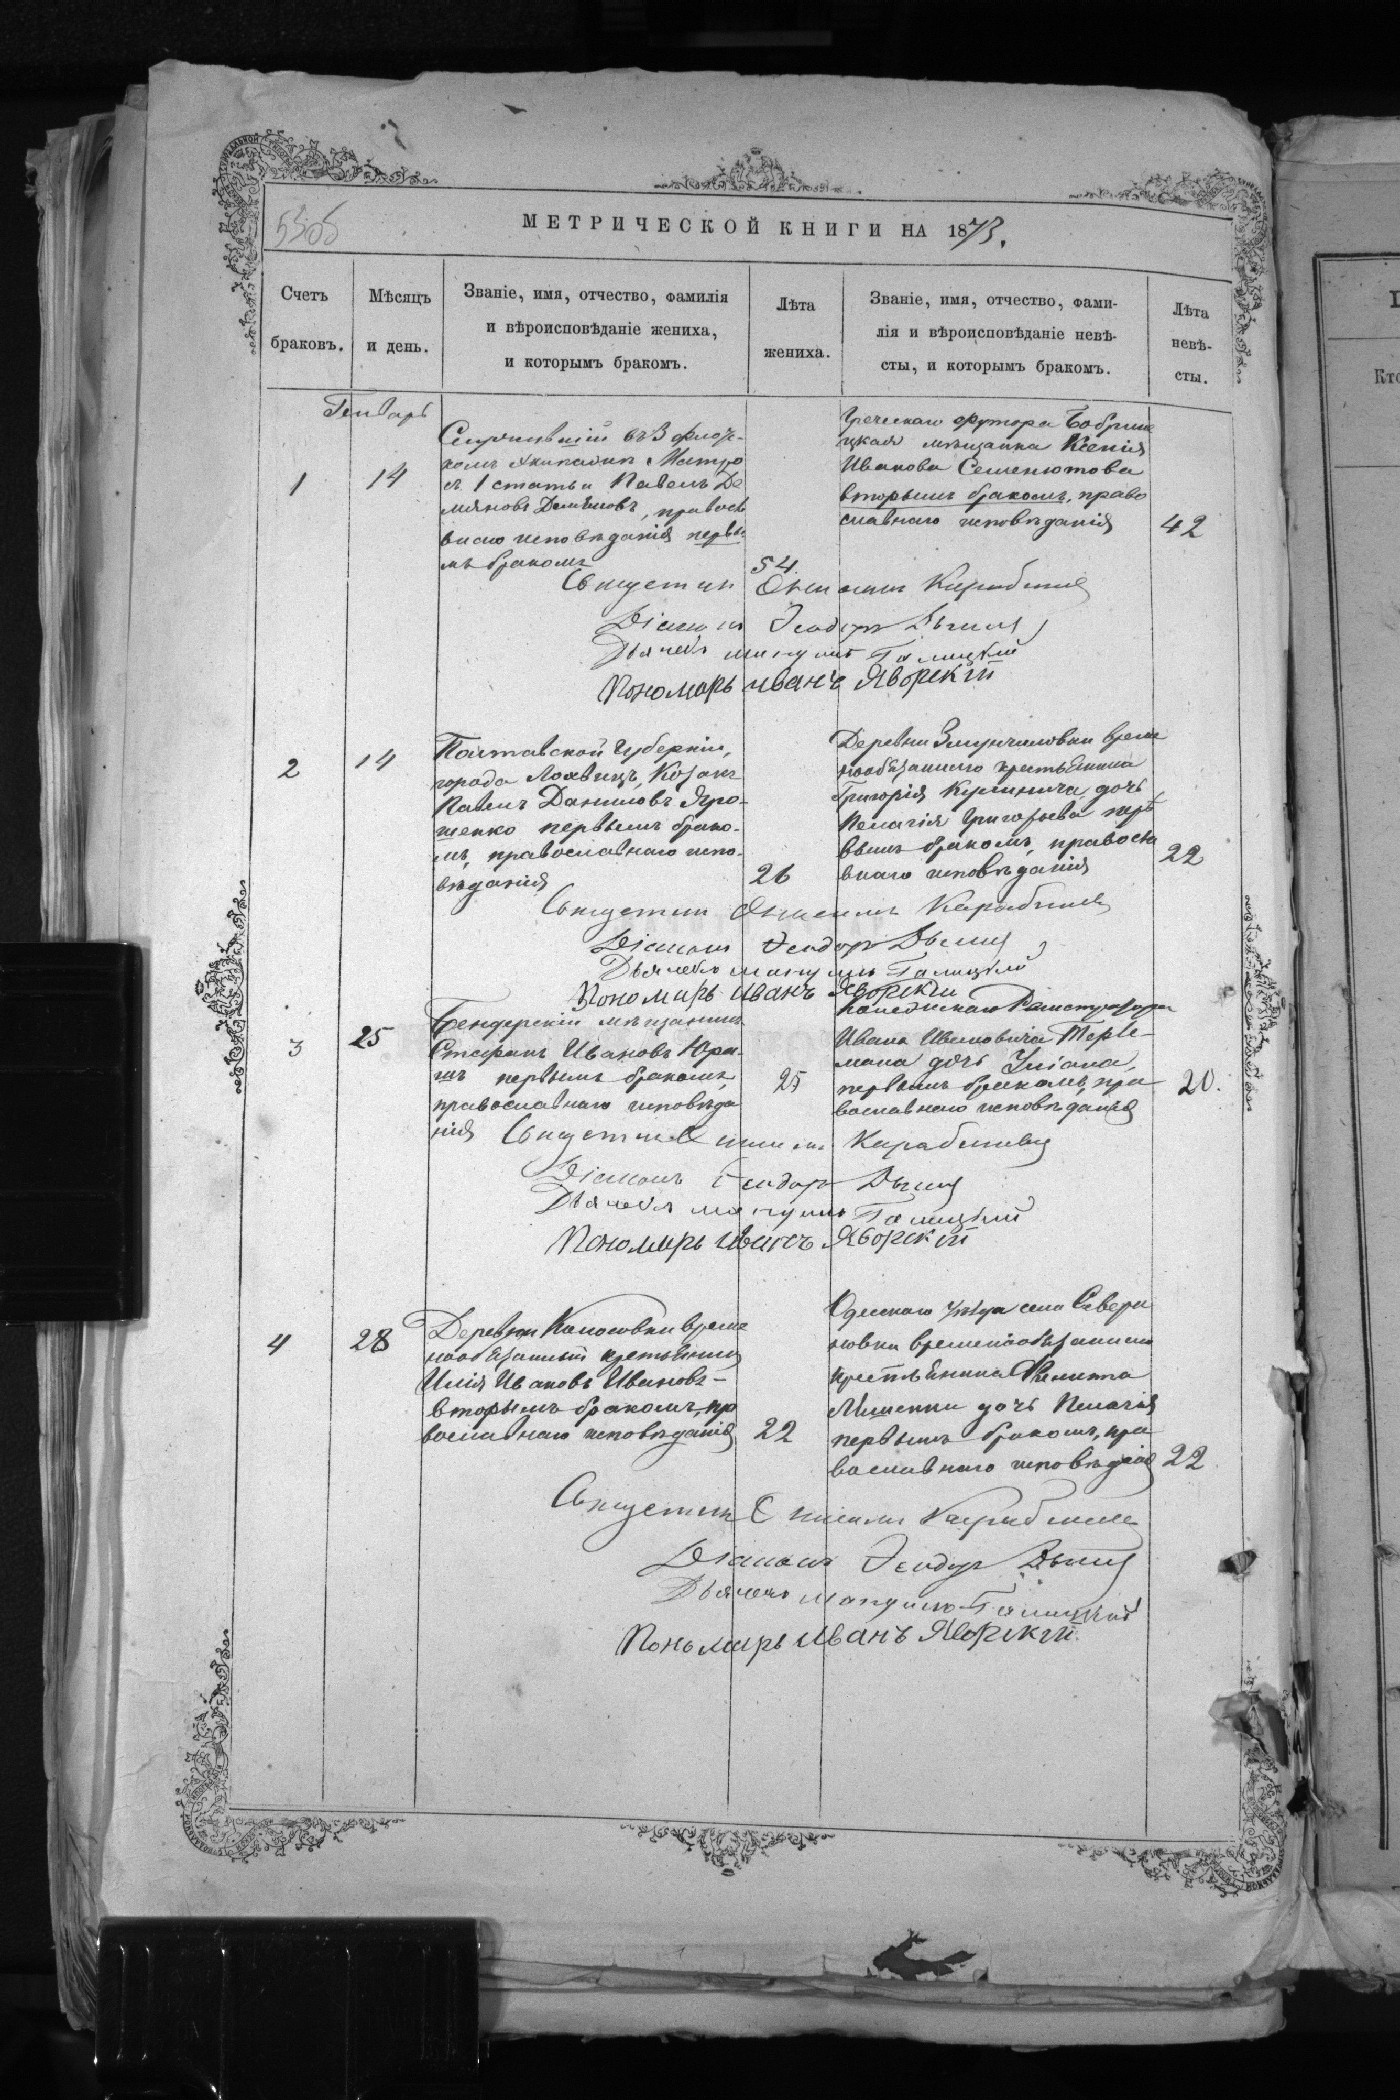 5505
МЕТРИЧЕСКОЙ КНИГИ НА 1873.
Счетъ
браковъ.
Мѣсяцъ
и день.
Званіе, имя, отчество, фамилія
и вѣроисповѣданіе жениха,
и которымъ бракомъ.
Лѣта
жениха.
Званіе, имя, отчество, фами-
лія и вѣроисповѣданіе невѣ-
сты, и которымъ бракомъ.
Лѣта
невѣ-
сты.
Генварь
1
14
Служившій въ 3 флотс-
комъ экипажѣ Матро
съ 1 статьи Павелъ Де
мяновъ, правосла
внаго исповѣданія первы
мъ бракомъ
54.
Греческаго футора Бобрине
цкая мѣщанка Ксенія
Иванова Семенютова
вторымъ бракомъ, право
славнаго исповѣданія
42
Священникъ
Діаконъ Ѳеодоръ
Дьячекъ Галицкій
Пономарь Иванъ Яворскій
2
14
Полтавской Губерніи,
города Лохвицъ, Козакъ
Павелъ Даниловъ Яро-
шенко первымъ брако-
мъ, православнаго испо-
вѣданія
26
Деревни време
ннообязаннаго крестьянина
Григорія дочь
Пелагія Григорьева пер
вымъ бракомъ, правосла
внаго исповѣданія
22
Священникъ
Діаконъ Ѳеодоръ
Дьячекъ Галицкій
Пономарь Иванъ Яворскій
3
25
Бендерскій мѣщанинъ
Стефанъ Ивановъ Юра-
шъ первымъ бракомъ,
православнаго исповѣда
нія
25
Регистратора
Ивана Ивановича Терле-
дочь Уліана,
первымъ бракомъ, пра
вославнаго исповѣданія
20.
Священникъ
Діаконъ Ѳеодоръ
Дьячекъ Галицкій
Пономарь Иванъ Яворскій
4
28
Деревни Колосовки време
ннообязанный крестьянинъ
Илія Ивановъ Ивановъ-
вторымъ бракомъ, пра
вославнаго исповѣданія
22
Одесскаго уѣзда села Севери
новки временнообязаннаго
крестьянина
дочь Пелагія
первымъ бракомъ, пра
вославнаго исповѣданія
22
Священникъ
Діаконъ Ѳеодоръ
Дьячекъ Галицкій
Пономарь Иванъ Яворскій.
Кто